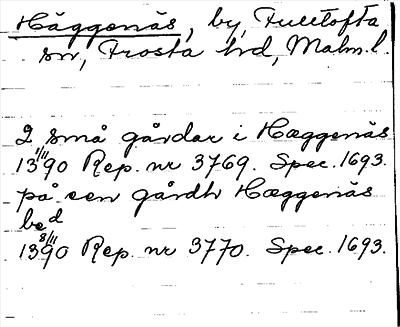 Häggenäs, by, Fulltofta
sn, Frosta hd, Malm. l.
2 små gårdar i Hæggenäs
1390 1/11 Rep. nr 3769. Spec. 1693.
på een gårdh Hæggenäs
bed
1390 8/11 Rep. nr 3770. Spec. 1693.